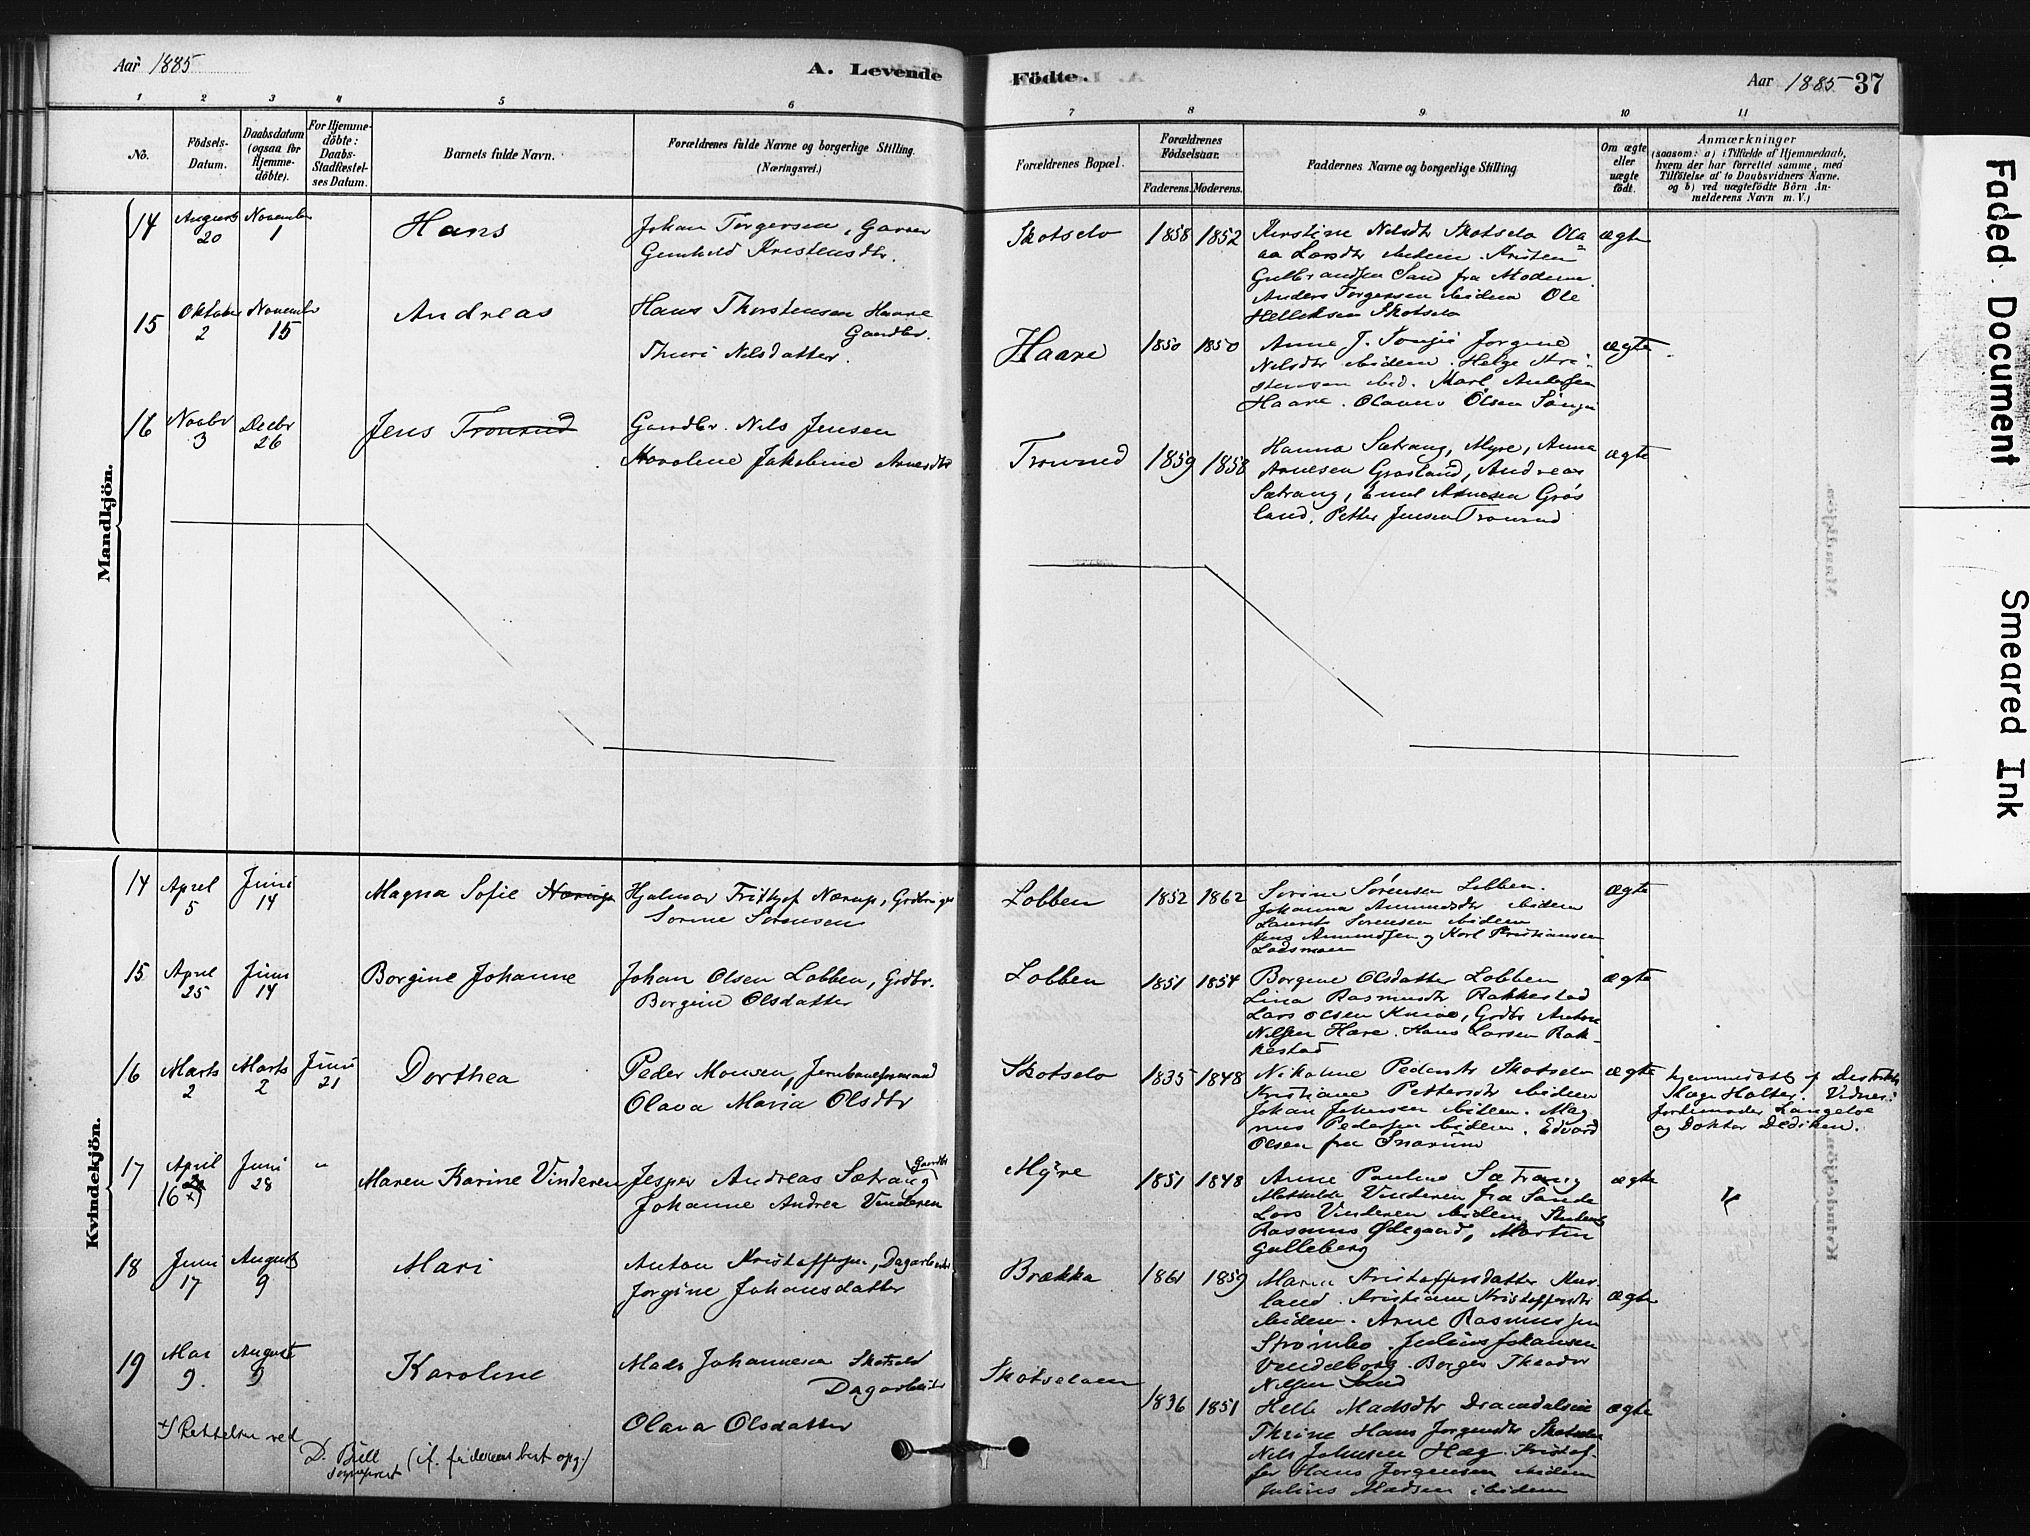 Aar 1885
A. Levende
Födte.
Aar 1885
37
1 2 3 4 5 6 7 8 9 10 11
No.
Födsels-Datum.
Daabsdatum (ogsaa for Hjemme-döbte).
For Hjemme-döbte: Daabs-Stadfæstel-ses Datum.
Barnets fulde Navn.
Forældrenes fulde Navne og borgerlige Stilling.
(Næringsvei.)
Forældrenes Bopæl.
Forældrenes Fødselsaar.
Faderens. Moderens.
Faddernes Navne og borgerlige Stilling
Om ægte eller uægte födt.
Anmærkninger
(saasom: a) i Tilfælde af Hjemmedaab,
hvem der har forrettet samme, med
Tilföielse af to Daabsvidners Navne.
og b) ved uægtefödte Börn An-
melderens Navn m. V.)
Mandkjön.
14 August 20 November 1 Hans
Johan Torgersen, Garver
Gunhild Kristensdtr.
Skotselv 1858 1852
Kirstine Nilsdtr Skotselv
Larsdtr ibidem Kristen
Gulbrandsen Sand fra Modum
Anders Torgersen ibidem Ole
Helleksen Skotselv
ægte
15 Oktober 2 November 15 Andreas
Hans Thorstensen Haare
Gaardbr.
Thuri Nilsdatter.
Haare 1850 1850
Anne J. Jorgine
Nilsdtr ibidem. Helge
ibid. Karl Andersen
Haare. Olsen
ægte
16 Novbr 3 Decbr 26 Jens Tronrud
Gaardbr. Nils Jensen
Karoline Jakobine Arnesdtr
Tronrud 1859 1858
Hanna Sætrang, Myre, Anna
Arnesen Grøsland, Andreas
Sætrang, Emil Arnesen Grøs
land, Petter Jensen Tronrud
ægte
Kvindekjön.
14 April 5 Juni 14 Magna Sofie
Hjalmar Frithjof Nærup,
Sorine Sørensen
Lobben 1852 1862
Sorine Sørensen Lobben.
Johanna Amundsdtr ibidem
Laurits Sorensen ibidem
Jens Amundsen og Karl Kristiansen
Lodsmoen
ægte
15 April 25 Juni 14 Borgine Johanne
Johan Olsen Lobben, Grdbr.
Borgine Olsdatter
Lobben 1851 1854
Borgine Olsdatter Lobben
Lina Rasmusdtr Rakkestad
Lars Olsen Knive, Grdbr Anton
Nilsen Hære. Hans Larsen Rak-
kestad
ægte
16 Marts 2 Marts 2 Juni 21 Dorthea
Peder Monsen, Jernbaneformand
Olava Maria Olsdtr
Skotselv 1835 1848
Nikoline Pedersdtr Skotselv
Kristiane Pettersdtr ibidem
Johan Johnsen ibidem. Mag
nus Pedersen ibidem. Edvard
Olsen fra Snarum
ægte
hjemmedøbt af Distrikts
læge Holter. Vidner:
Jordmoder Langeloe
og Doktor Dedichen.
17 April 16 x) Juni 28 " Maren Karine Vinderen
Jesper Andreas Sætrang Gaardbr
Johanne Andrea Vinderen
Myre 1851 1848
Anne Pauline Sætrang
Mathilde Vinderen fra Sande
Lars Vinderen ibidem, Student
Rasmus Ødegaard, Martin
Gulleberg
ægte
18 Juni 17 August 9 Mari
Anton Kristoffersen, Dagarbeider
Jorgine Johansdatter
Brækka 1861 1859
Maren Kristoffersdatter
land. Kristiane Kristoffersdtr
ibidem. Arne Rasmussen
Strømbo. Julius Johansen
Vendelborg. Borger Theodor
Nilsen Sand
ægte
19 Mai 9. August 9 Karoline
Mads Johannesen Skotselv
Dagarbeider
Olava Olsdatter
Skotselven 1836 1851
Helle Madsdtr
Thrine Hans Jorgensdtr Skotselv
Nils Johnsen Hæg. Kristof-
fer Hans Jorgensen ibidem
Julius Madsen ibidem
ægte
x) Rettelse ved
D. Büll
Sogneprest
(if. faderens best. opg.)
Faded Document
Smeared Ink